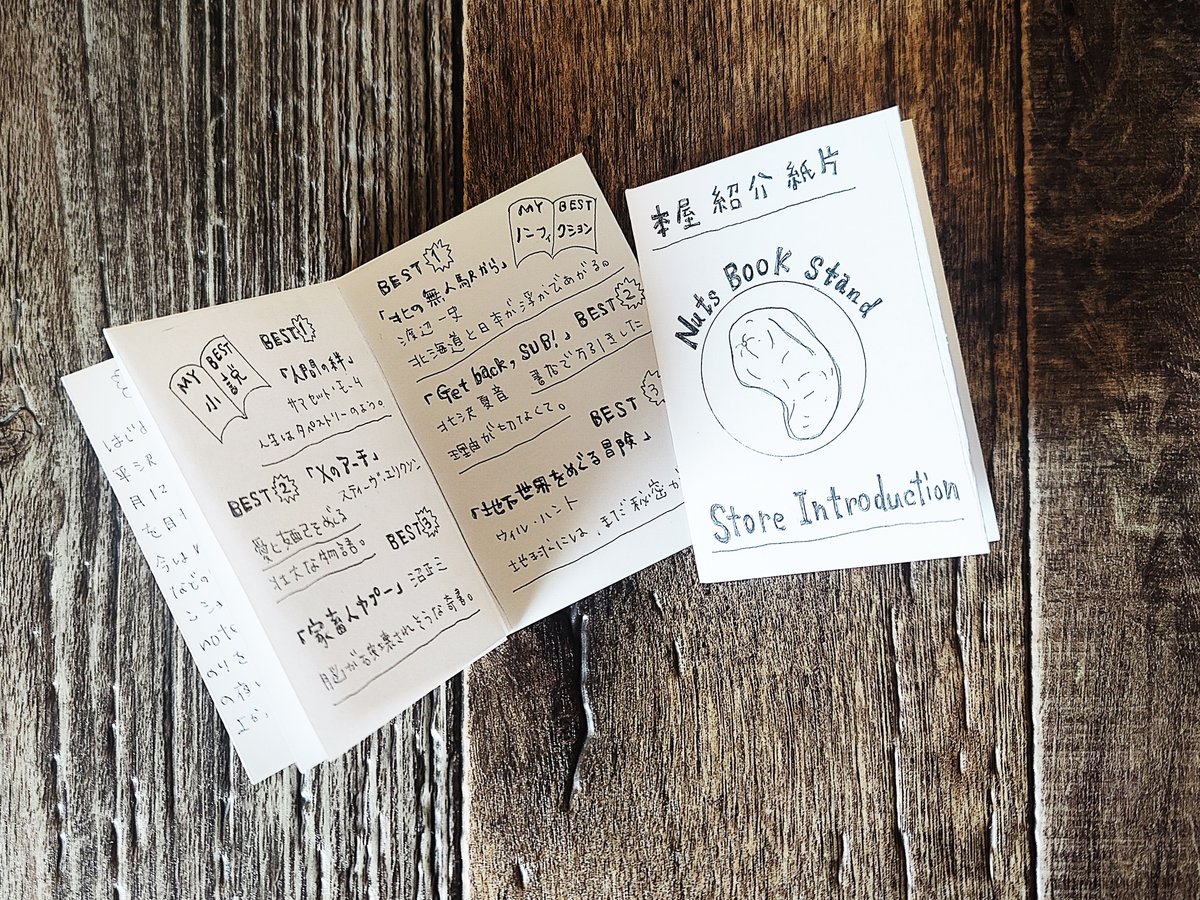 本屋紹介紙片
Nuts Book Stand
Store Introduction
MY BEST
小説
BEST 1
「人間の絆」
サマセット・モーム
人生はタペストリーのよう。
BEST 2
「Xのアーチ」
スティーヴ・エリクソン
をめぐる
壮大な物語。
BEST 3
「家畜人ヤプー」沼正三
脳が破壊されそうな奇書。
MY BEST
ノンフィクション
BEST 1
「北の無人駅から」
渡辺一史
北海道と日本が浮かびあがる。
BEST 2
「Get back, SUB!」
北沢夏音
で万引きした
理由が切なくて。
BEST 3
「地下世界をめぐる冒険」
ウィル・ハント
地球には、まだ秘密が
平沢
月12
を月1
今は
などの
note